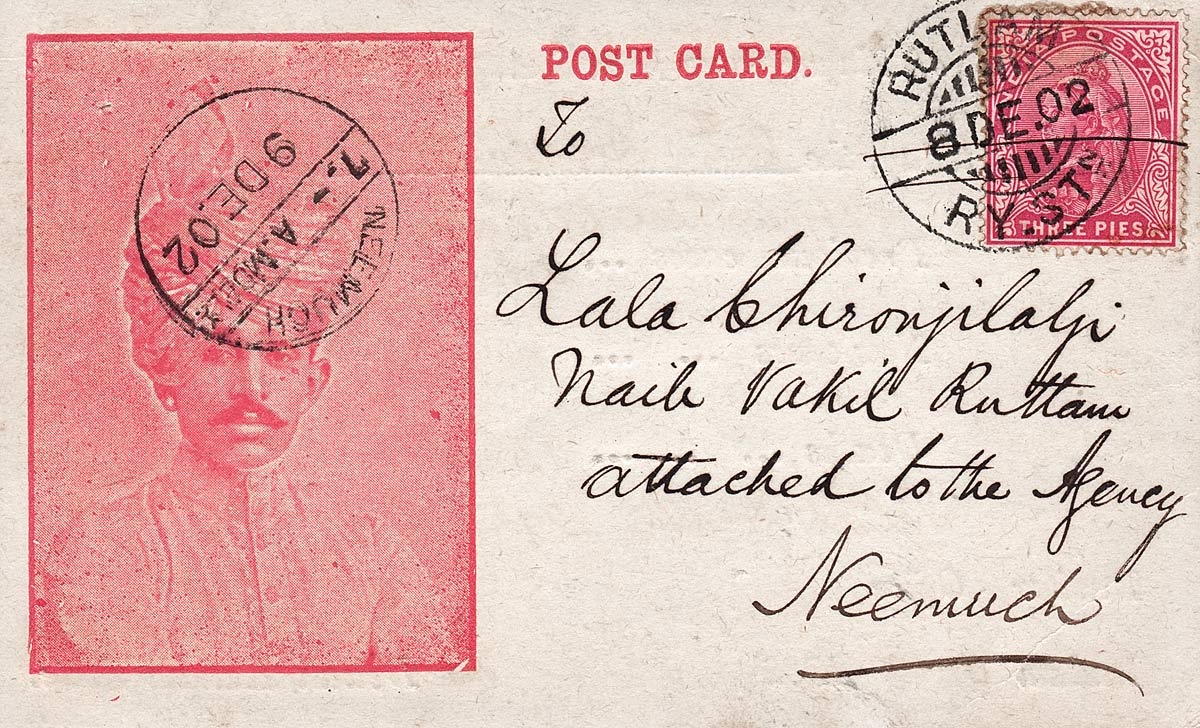 POST CARD.
To
Lala Chironjilalji
Naib Vakil Ruttam
attached to the Agency
Neemuch
RUTLAM
8 DE.02
RY.ST
INDIA POSTAGE
THREE PIES
NEEMUCH
9 DE.02